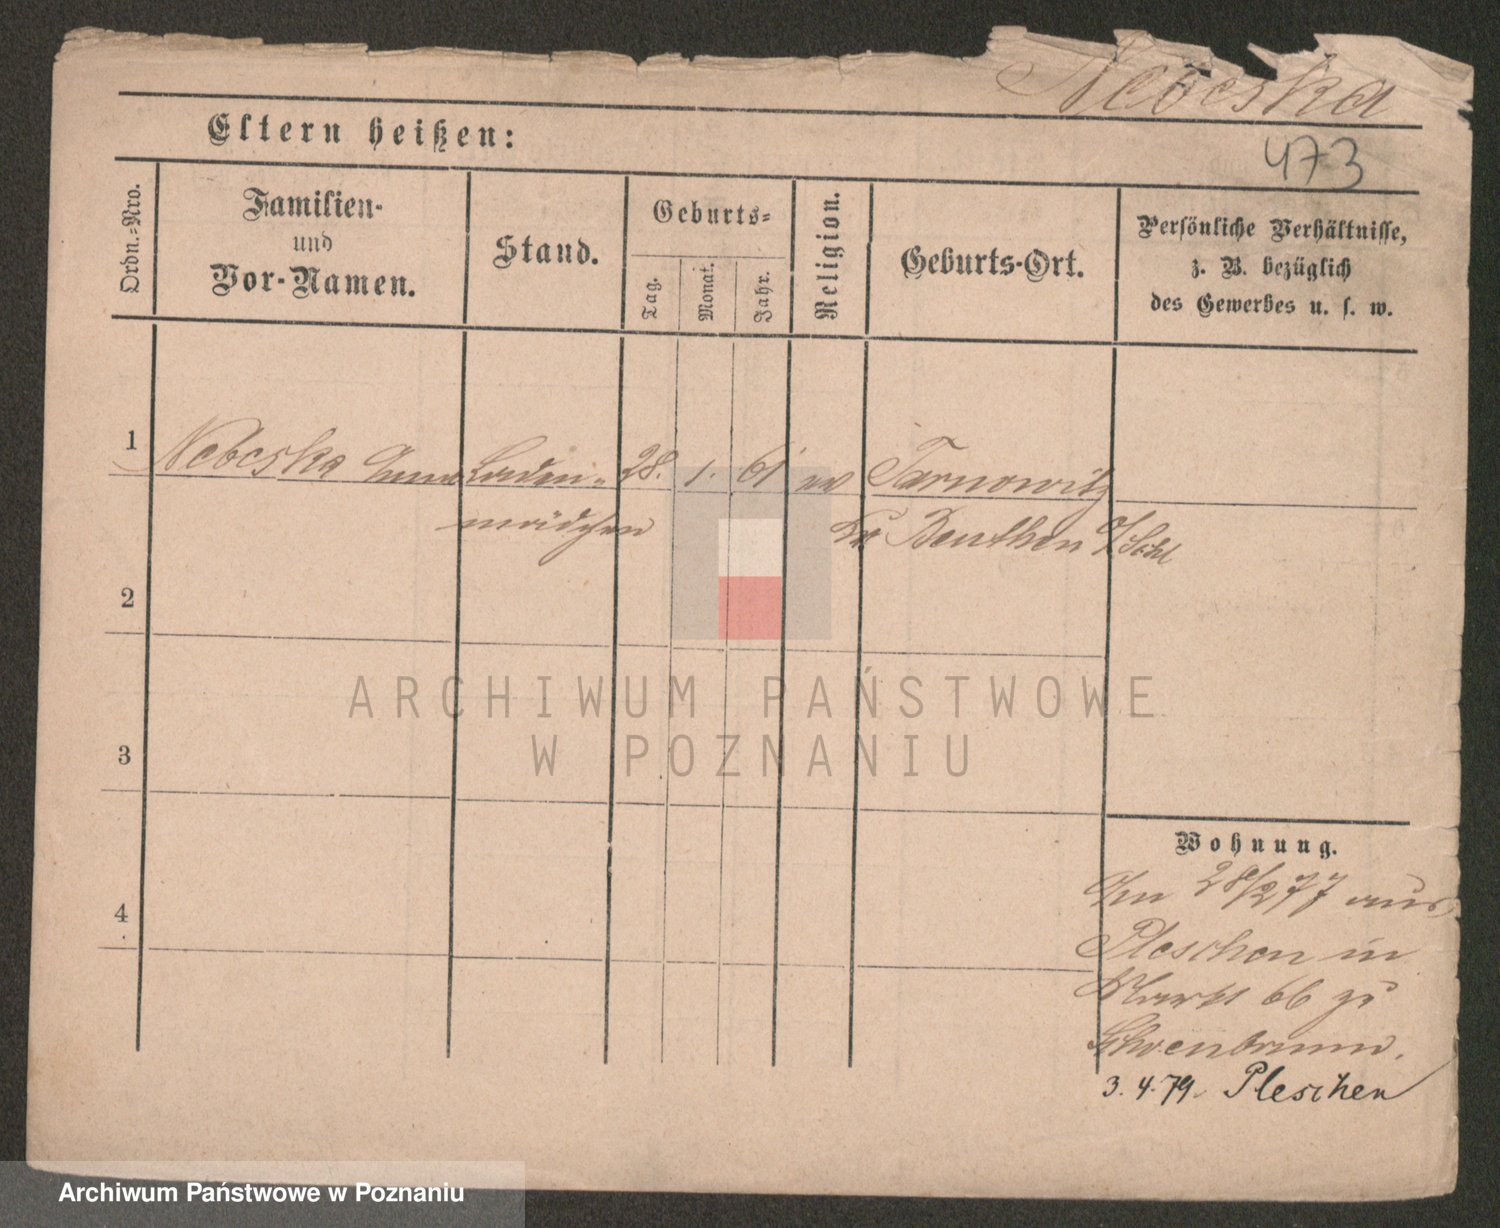 Nebeska
473
Eltern heißen:
Ordn.-Nro.
Familien-
und
Vor-Namen.
Stand.
Geburts-
Tag.
Monat.
Jahr.
Religion.
Geburts-Ort.
Persönliche Verhältnisse,
z. B. bezüglich
des Gewerbes u. s. w.
1 Nebeska Anna Laden- 28. 1. 61 ev Tarnowitz
mädchen Kr Beuthen O/Schl
2
3
4
ARCHIWUM PAŃSTWOWE
W POZNANIU
Wohnung.
Am 28/2 77 aus
Pleschen in
Markt 66 zu
Schoenbrunn.
3.4.79. Pleschen
Archiwum Państwowe w Poznaniu